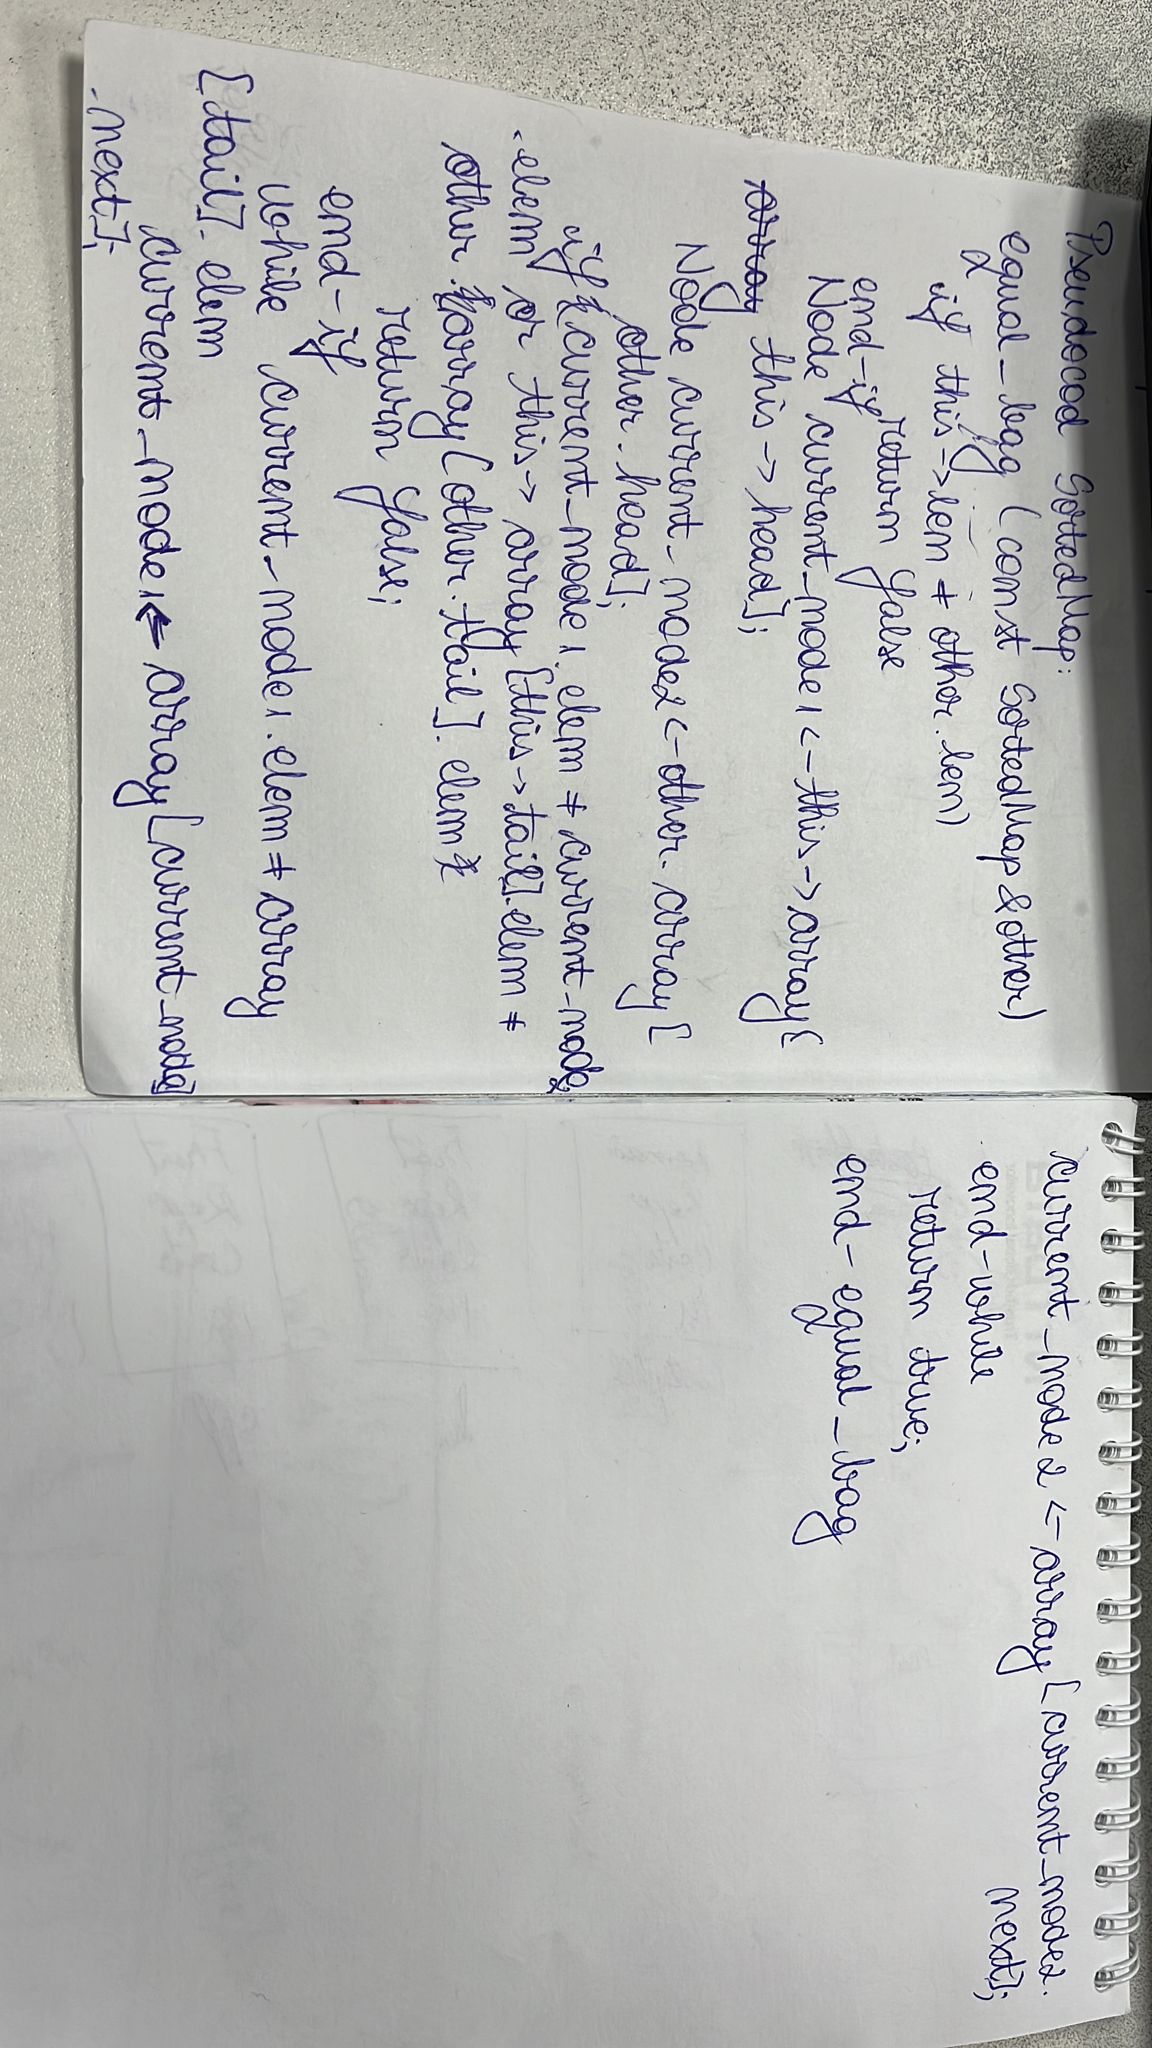 Pseudocod SortedMap:
equal_bag (const SortedMap & other)
if this->len ≠ other.len)
return false
end-if
Node current_node1 <- this->array[
this->head];
Node current_node2 <- other.array[
other.head];
if current_node1.elem ≠ current_node2
.elem or this->array[this->tail].elem ≠
other.array[other.tail].elem
return false;
end-if
while current_node1.elem ≠ array
[tail].elem
current_node1 <- array[current_node1
.next];
current_node2 <- array[current_node2.
next];
end-while
return true;
end-equal_bag